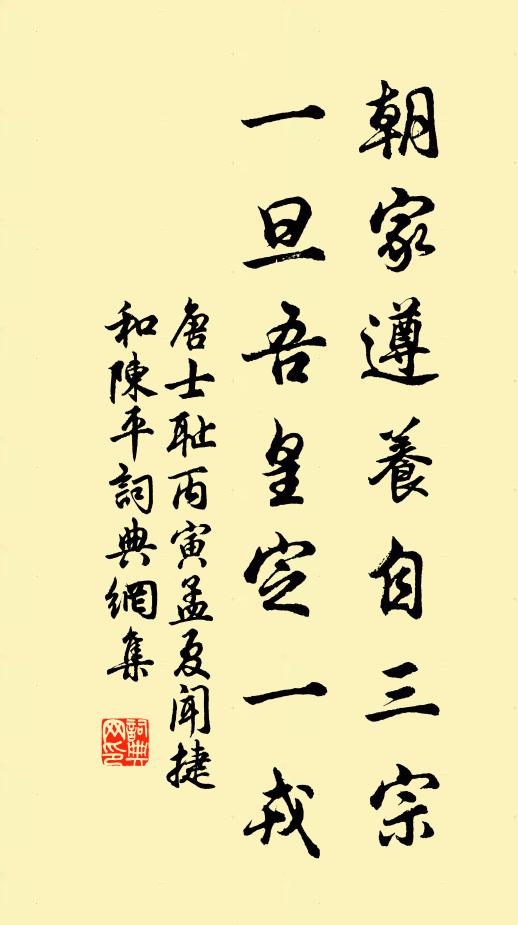 朝家遵養自三宗
一旦吾皇定一戎
唐士耻丙寅孟夏闻捷
和陳平詞典網集
詞典
网印